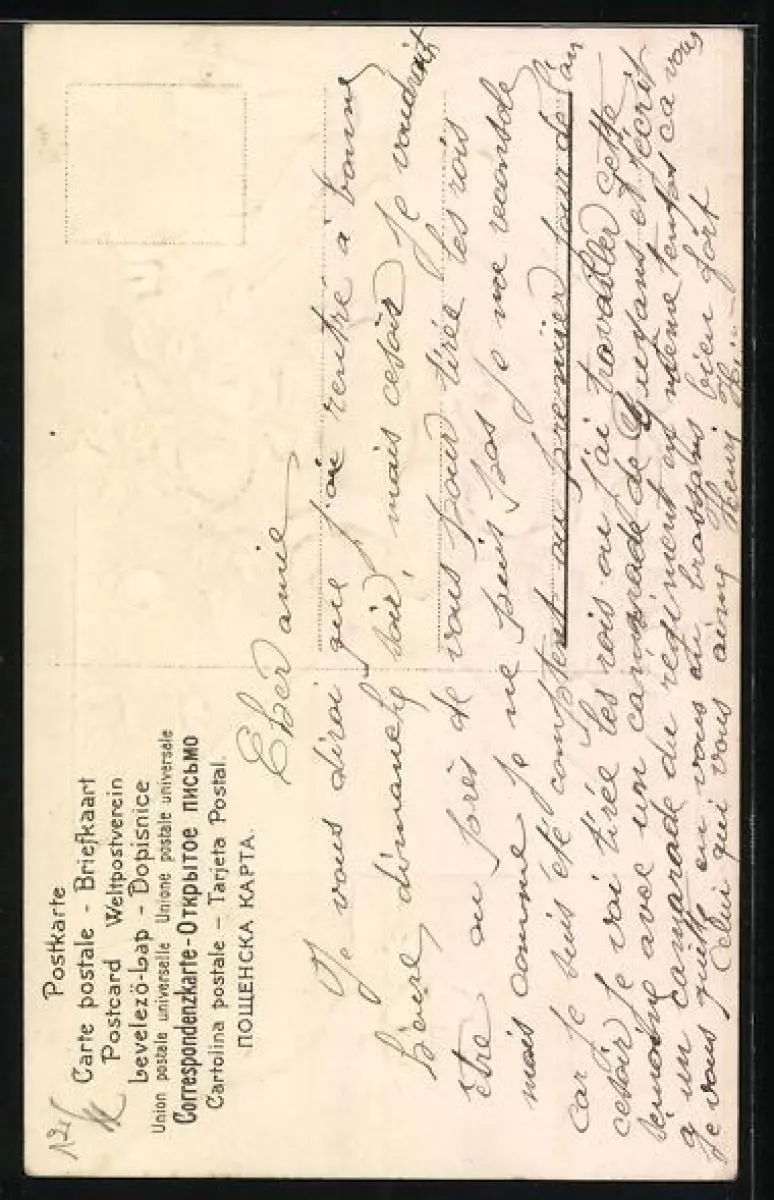 Postkarte
Carte postale - Briefkaart
Postcard Weltpostverein
Levelezö-Lap - Dopisnice
Union postale universelle Unione postale universale
Correspondenzkarte - Открытое письмо
Cartolina postale — Tarjeta Postal.
ПОЩЕНСКА КАРТА.
Cher amie
Je vous dirai que j'ai rentré a bonne
heure dimanche soir, mais cesoir Je voudrait
être au près de vous pour tirée les rois
mais comme Je ne puis pas Je me reconsole
car Je suis été comptent au premier jour de l'an
cesoir Je vai tirée les rois ou j'ai travailler cette
semaine avec un camarade de et d'écrit
a un camarade du regiment en même temps ca vous
Je vous quitte en vous en brassans bien fort
Celui qui vous aime Henri